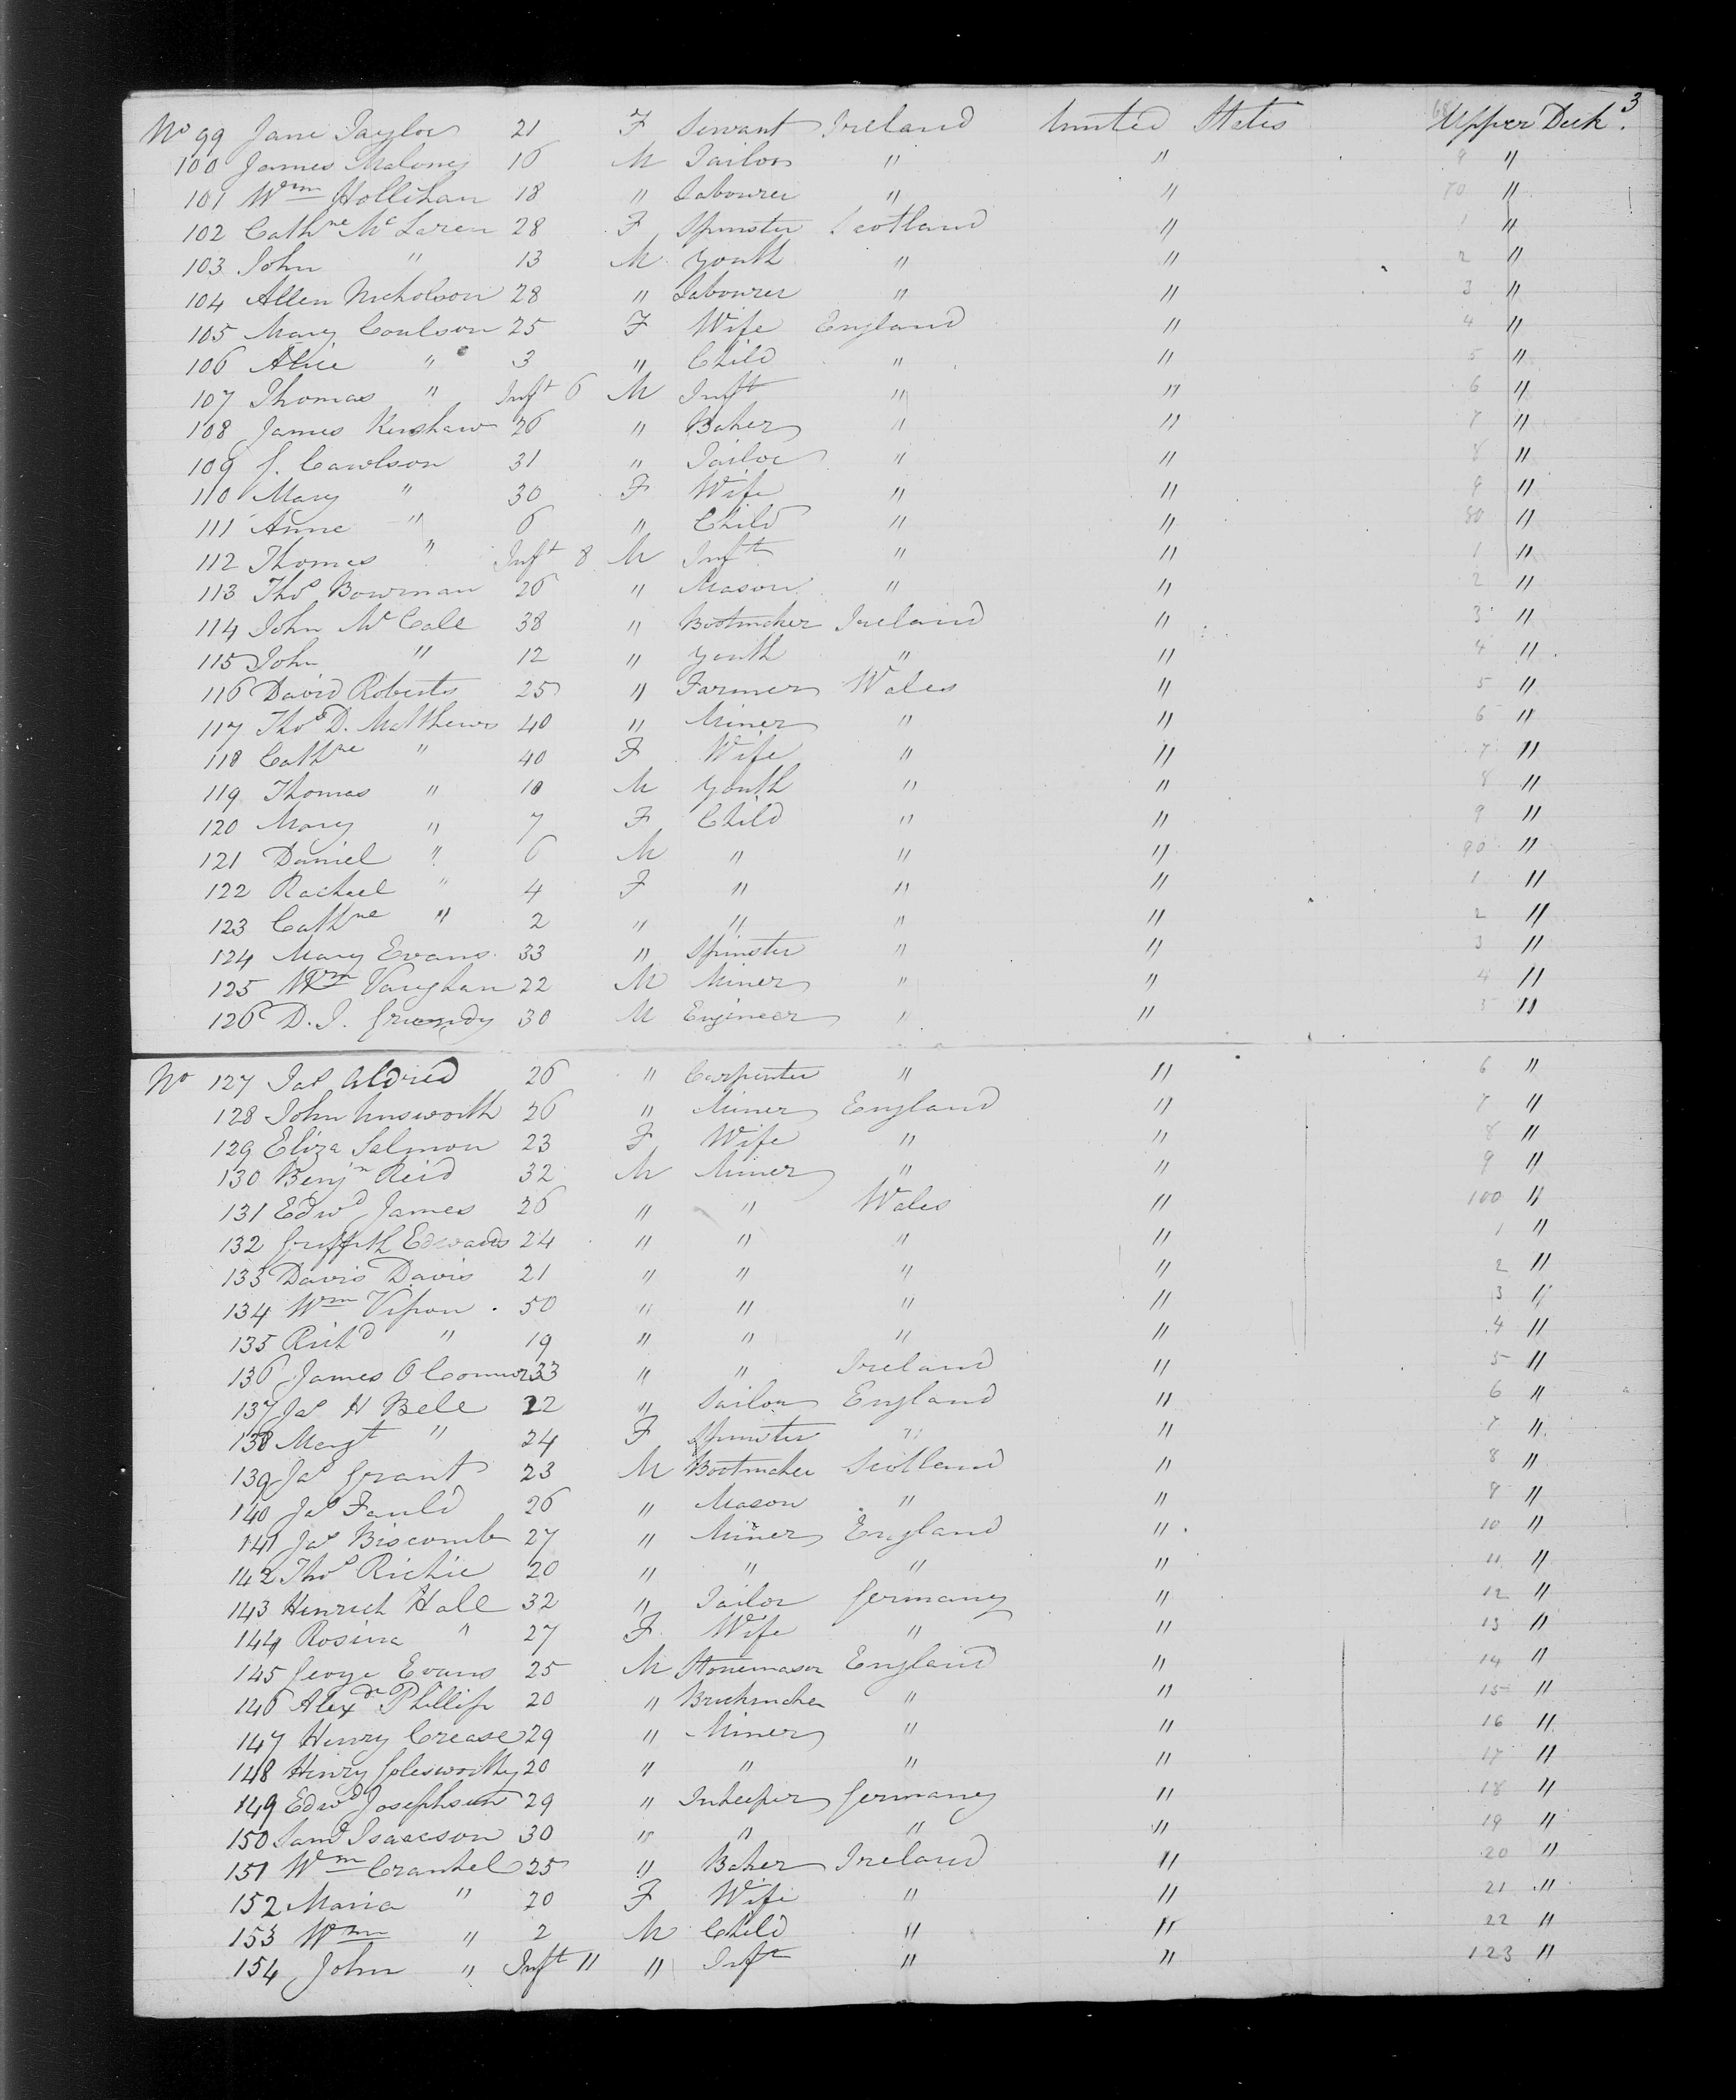 3
No 99 Jane Taylor 21 F Servant Ireland United States 68 Upper Deck.
100 James Maloney 16 M Tailor " " 9 "
101 Wm Hollihan 18 " Labourer " " 70 "
102 Cathne McLaren 28 F Spinster Scotland " 1 "
103 John " 13 M Youth " " 2 "
104 Allen Nicholson 28 " Labourer " " 3 "
105 Mary Coulson 25 F Wife England " 4 "
106 Alice " 3 " Child " " 5 "
107 Thomas " Inft 6 M Inft " " 6 "
108 James Kershaw 26 " Baker " " 7 "
109 J. Cawlson 31 " Tailor " " 8 "
110 Mary " 30 F Wife " " 9 "
111 Anne " 6 " Child " " 80 "
112 Thomas " Inft 8 M Inft " " 1 "
113 Thos Bowman 26 " Mason " " 2 "
114 John McCale 38 " Bootmaker Ireland " 3 "
115 John " 12 " Youth " " 4 "
116 David Roberts 25 " Farmer Wales " 5 "
117 Thos D. Matthews 40 " Miner " " 6 "
118 Cathne " 40 F Wife " " 7 "
119 Thomas " 10 M Youth " " 8 "
120 Mary " 7 F Child " " 9 "
121 Daniel " 6 M " " " 90 "
122 Rachael " 4 F " " " 1 "
123 Cathne " 2 " " " " 2 "
124 Mary Evans 33 " Spinster " " 3 "
125 Wm Vaughan 22 M Miner " " 4 "
126 D. J. Grundy 30 M Engineer " " 5 "
No 127 Jas Aldred 26 " Carpenter " " 6 "
128 John Unsworth 26 " Miner England " 7 "
129 Eliza Salmon 23 F Wife " " 8 "
130 Benjn Reid 32 M Miner " " 9 "
131 Edwd James 26 " " Wales " 100 "
132 Griffith Edwards 24 " " " " 1 "
133 Davis Davis 21 " " " " 2 "
134 Wm Vipon 50 " " " " 3 "
135 Richd " 19 " " " " 4 "
136 James O Connor 33 " " Ireland " 5 "
137 Jas H Bell 22 " Sailor England " 6 "
138 Margt " 24 F Spinster " " 7 "
139 Jas Grant 23 M Bootmaker Scotland " 8 "
140 Jas Fauld 26 " Mason " " 9 "
141 Jas Biscomb 27 " Miner England " 10 "
142 Thos Richie 20 " " " " 11 "
143 Henrich Hall 32 " Tailor Germany " 12 "
144 Rosina " 27 F Wife " " 13 "
145 George Evans 25 M Stonemason England " 14 "
146 Alexdr Phillip 20 " Brickmaker " " 15 "
147 Henry Crease 29 " Miner " " 16 "
148 Henry Golesworthy 20 " " " " 17 "
149 Edwd Josephson 29 " Inkeeper Germany " 18 "
150 Saml Isaacson 30 " " " " 19 "
151 Wm Crankel 25 " Baker Ireland " 20 "
152 Maria " 20 F Wife " " 21 "
153 Wm " 2 M Child " " 22 "
154 John " Inft 11 " Inft " " 123 "